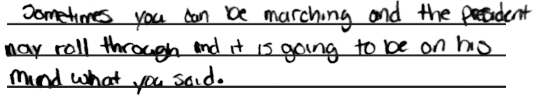 Sometimes you can be marching and the president
may roll through and it is going to be on his
mind what you said.